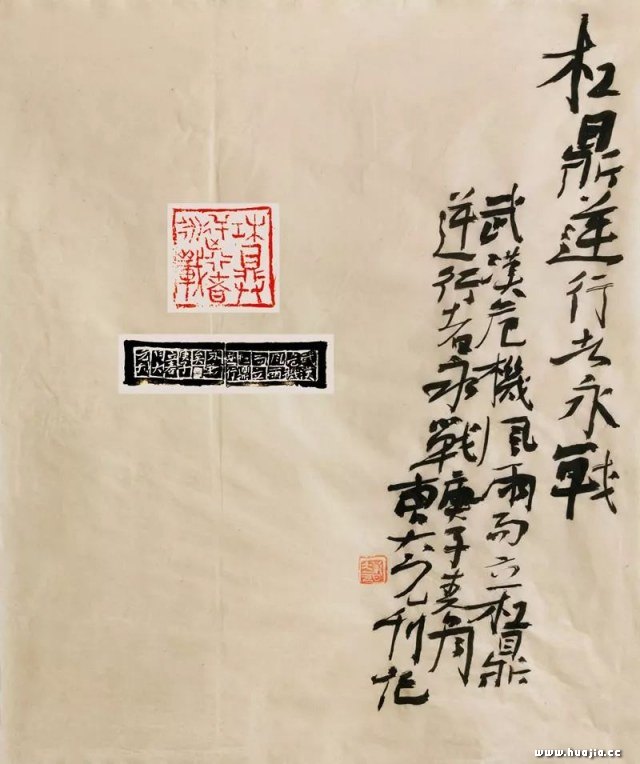 杠鼎逆行者永戰
武漢危機風雨而立杠鼎
逆行者永戰庚子
東大元刊记
扛鼎
逆行者
永戰
www.huajia.cc